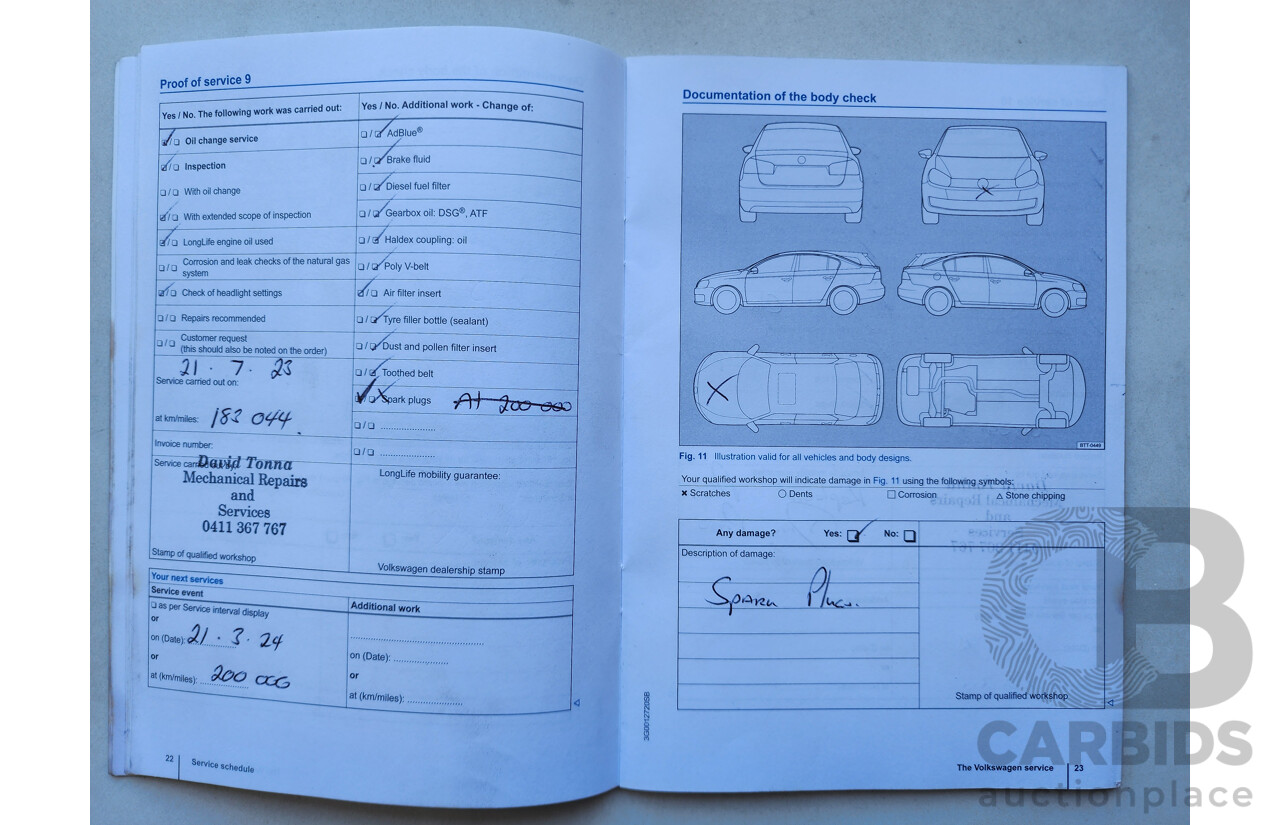 Proof of service 9
Yes / No. The following work was carried out:
☑/☐ Oil change service
☑/☐ Inspection
☐/☐ With oil change
☑/☐ With extended scope of inspection
☑/☐ LongLife engine oil used
☐/☐ Corrosion and leak checks of the natural gas
system
☑/☐ Check of headlight settings
☐/☐ Repairs recommended
☐/☐ Customer request
(this should also be noted on the order)
21 . 7 . 23
Service carried out on:
at km/miles: 183 044.
Invoice number:
David Tonna
Mechanical Repairs
and
Services
0411 367 767
Stamp of qualified workshop
Yes / No. Additional work - Change of:
☐/☑ AdBlue®
☐/☑ Brake fluid
☐/☑ Diesel fuel filter
☐/☑ Gearbox oil: DSG®, ATF
☐/☑ Haldex coupling: oil
☐/☑ Poly V-belt
☑/☐ Air filter insert
☐/☑ Tyre filler bottle (sealant)
☐/☑ Dust and pollen filter insert
☐/☑ Toothed belt
☑/☐ Spark plugs At 200 000
☐/☐ ....................
☐/☐ ....................
LongLife mobility guarantee:
Volkswagen dealership stamp
Your next services
Service event
☐ as per Service interval display
or
on (Date): 21 . 3 . 24
or
at (km/miles): 200 000
Additional work
on (Date): ....................
or
at (km/miles): ....................
22 Service schedule
Documentation of the body check
BTT-0449
Fig. 11 Illustration valid for all vehicles and body designs.
Your qualified workshop will indicate damage in Fig. 11 using the following symbols:
× Scratches ○ Dents □ Corrosion △ Stone chipping
Any damage? Yes: ☑ No: ☐
Description of damage:
Spark Plug.
Stamp of qualified workshop
3G0012720SB
The Volkswagen service 23
CB
CARBIDS
auctionplace